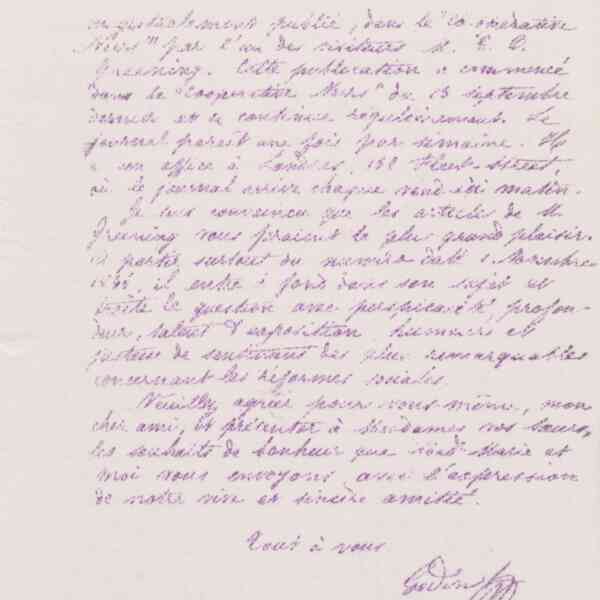 magistralement publié, dans le "Co-opérative
News" par l'un des visiteurs M. E. O.
Greening. Cette publication a commencé
dans le "Cooperative News" du 13 septembre
dernier et se continue régulièrement. Le
journal paraît une fois par semaine. Il
a son office à Londres, Fleet-street,
où le journal arrive chaque vendredi matin.
Je suis convaincu que les articles de M.
Greening vous feraient le plus grand plaisir.
A partir surtout du numéro daté 1 Novembre
il entre à fond dans son sujet et
traite la question avec perspicacité, profon-
deur, talent d'exposition lumière et
justesse de sentiment des plus remarquables
concernant les réformes sociales.
Veuillez agréer pour vous-même, mon
cher ami, et présenter à Mesdames vos sœurs,
les souhaits de bonheur que Marie et
moi vous envoyons avec l'expression
de notre vive et sincère amitié.
Tout à vous
Godin